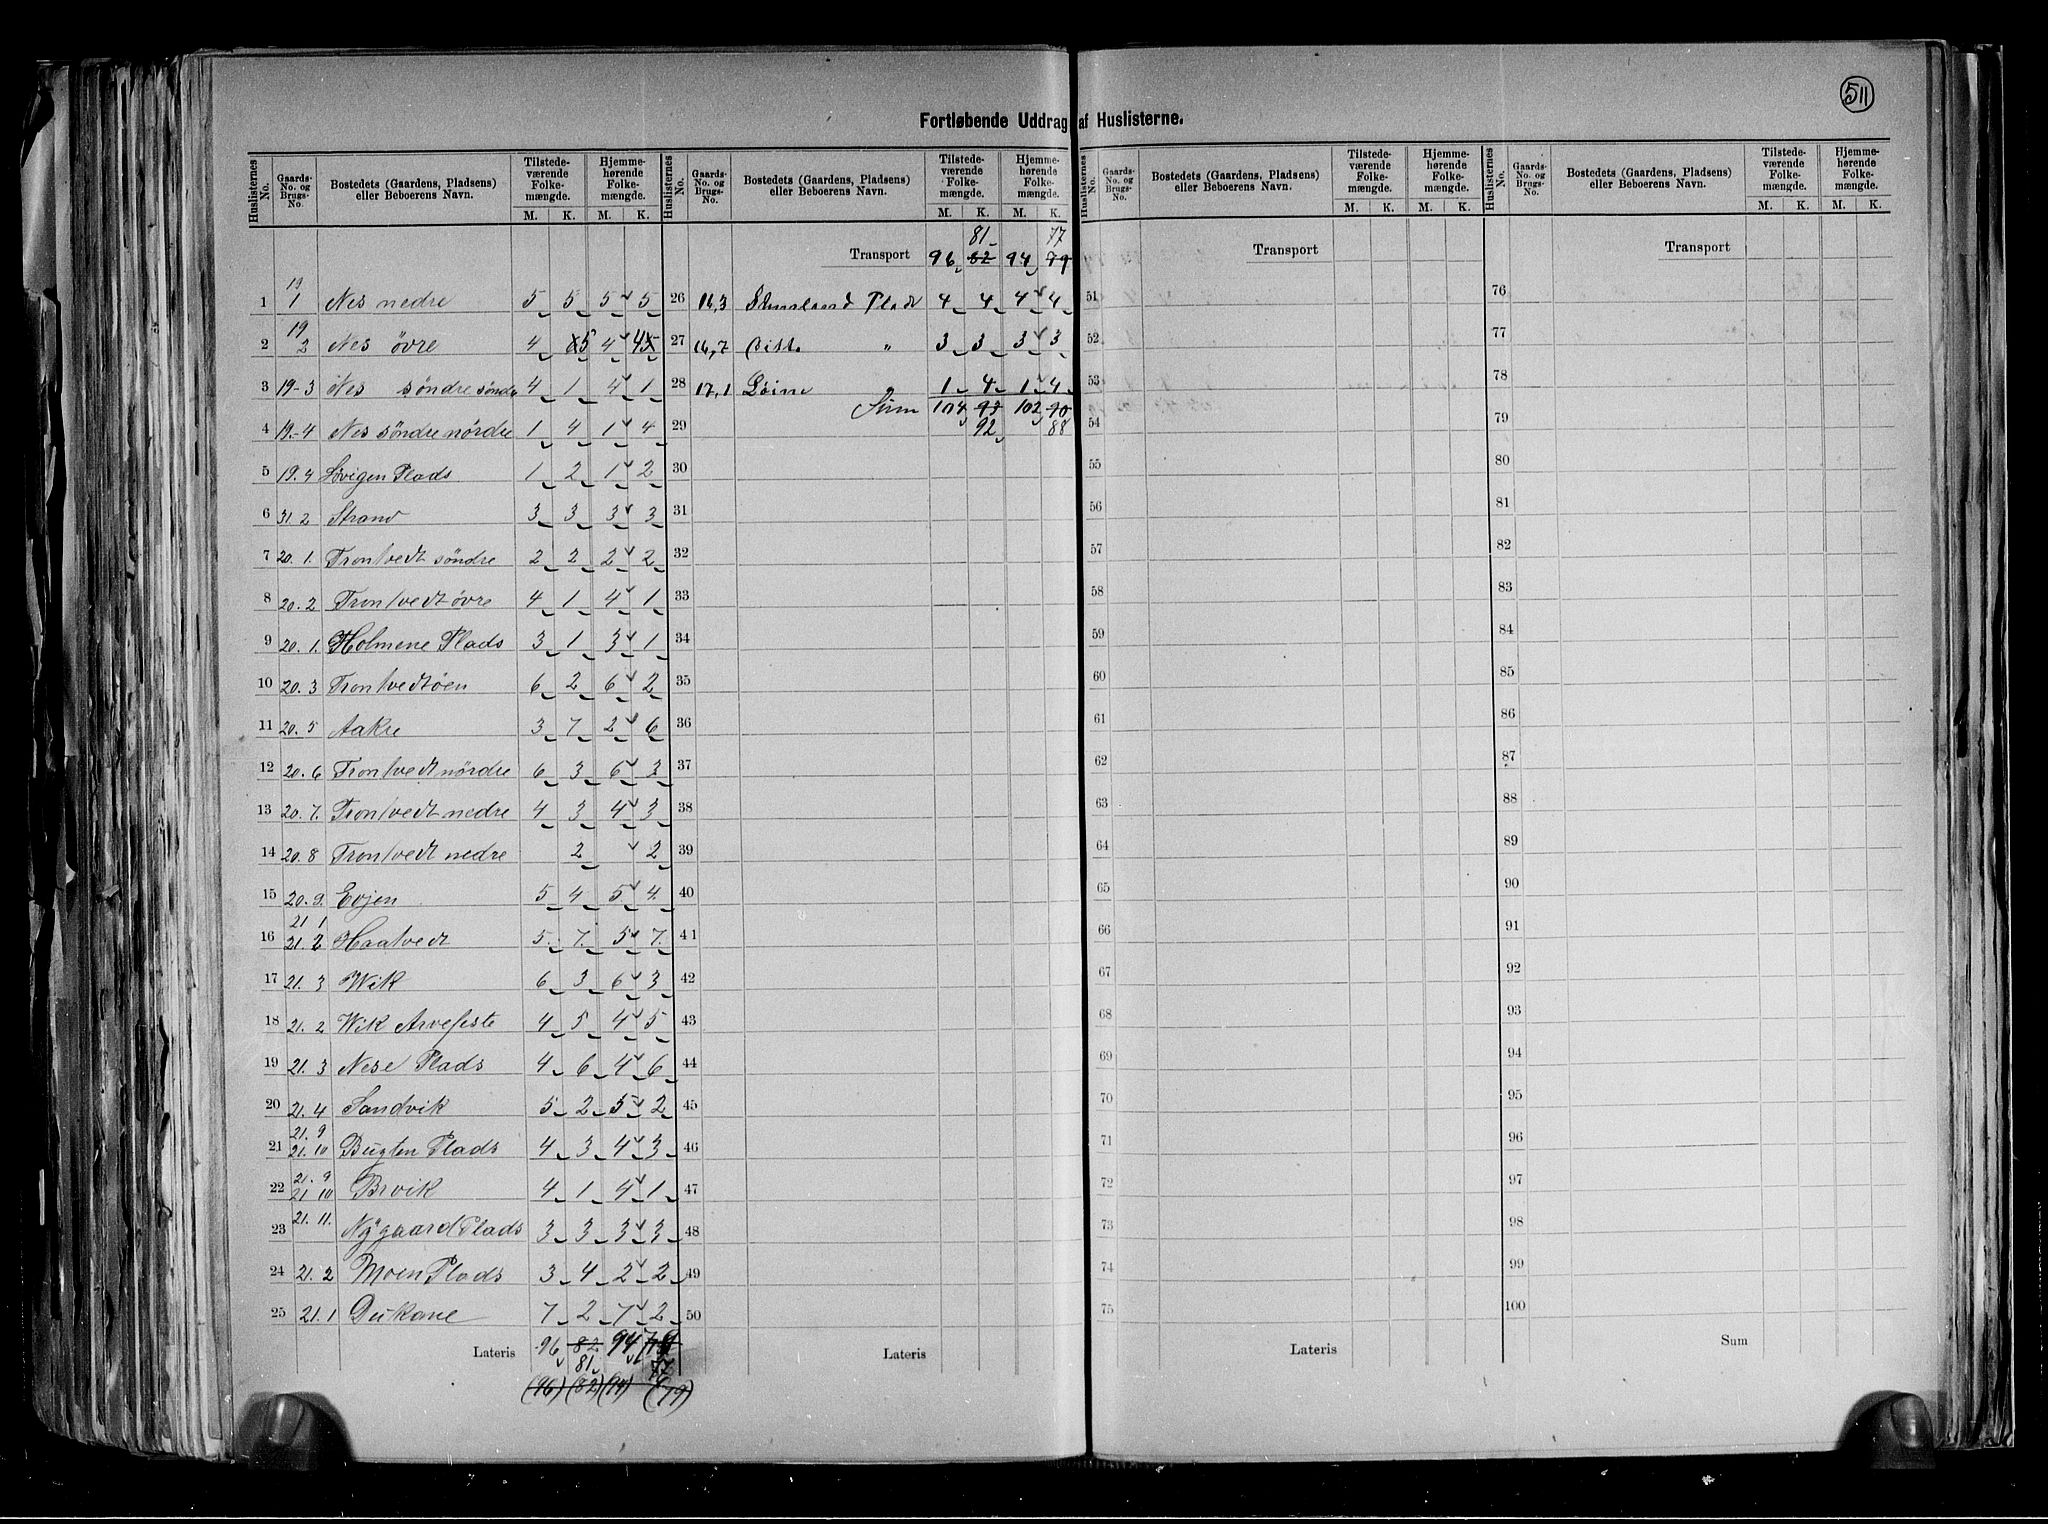 511
Fortløbende Uddrag af Huslisterne.
Huslisternes No. | Gaards-No. og Brugs-No. | Bostedets (Gaardens, Pladsens) eller Beboerens Navn. | Tilstedeværende Folkemængde. M. K. | Hjemmehørende Folkemængde. M. K.
1 | 19 1 | Nes nedre | 5 | 5 | 5 | 5
2 | 19 2 | Nes övre | 4 | 5 | 4 | 4
3 | 19-3 | Nes söndre söndre | 4 | 1 | 4 | 1
4 | 19-4 | Nes söndre nördre | 1 | 4 | 1 | 4
5 | 19.4 | Plads | 1 | 2 | 1 | 2
6 | 31.2 | Strand | 3 | 3 | 3 | 3
7 | 20.1. | Trontvedt söndre | 2 | 2 | 2 | 2
8 | 20.2 | Trontvedt övre | 4 | 1 | 4 | 1
9 | 20.1. | Holmene Plads | 3 | 1 | 3 | 1
10 | 20.3 | Trontvedtöen | 6 | 2 | 6 | 2
11 | 20.5 | Aakre | 3 | 7 | 2 | 6
12 | 20.6 | Trontvedt nördre | 6 | 3 | 6 | 2
13 | 20.7. | Trontvedt nedre | 4 | 3 | 4 | 3
14 | 20.8 | Trontvedt nedre | | 2 | | 2
15 | 20.9. | Evjen | 5 | 4 | 5 | 4
16 | 21 1 21.2 | Haatvedt | 5 | 7 | 5 | 7
17 | 21.3 | Wik | 6 | 3 | 6 | 3
18 | 21.2 | Wik Arvefeste | 4 | 5 | 4 | 5
19 | 21.3 | Nese Plads | 4 | 6 | 4 | 6
20 | 21.4 | Sandvik | 5 | 2 | 5 | 2
21 | 21.9 21.10 | Bugten Plads | 4 | 3 | 4 | 3
22 | 21.9 21 10 | Brvik | 4 | 1 | 4 | 1
23 | 21.11. | Nygaard Plads | 3 | 3 | 3 | 3
24 | 21.2 | Moen Plads | 3 | 4 | 2 | 2
25 | 21.1 | Dukane | 7 | 2 | 7 | 2
Lateris | 96 | 82 81 | 94 | 79 77
(96) (82) (94) (79)
Huslisternes No. | Gaards-No. og Brugs-No. | Bostedets (Gaardens, Pladsens) eller Beboerens Navn. | Tilstedeværende Folkemængde. M. K. | Hjemmehørende Folkemængde. M. K.
Transport | 96 | 81 82 | 94 | 77 79
26 | 16,3 | Plads | 4 | 4 | 4 | 4
27 | 16,7 | Ditto " | 3 | 3 | 3 | 3
28 | 17,1 | " | 1 | 4 | 1 | 4
Sum | 104 | 93 | 102 | 90
29 | 92 | 88
30
31
32
33
34
35
36
37
38
39
40
41
42
43
44
45
46
47
48
49
50
Lateris
Huslisternes No. | Gaards-No. og Brugs-No. | Bostedets (Gaardens, Pladsens) eller Beboerens Navn. | Tilstedeværende Folkemængde. M. K. | Hjemmehørende Folkemængde. M. K.
Transport
51
52
53
54
55
56
57
58
59
60
61
62
63
64
65
66
67
68
69
70
71
72
73
74
75
Lateris
Huslisternes No. | Gaards-No. og Brugs-No. | Bostedets (Gaardens, Pladsens) eller Beboerens Navn. | Tilstedeværende Folkemængde. M. K. | Hjemmehørende Folkemængde. M. K.
Transport
76
77
78
79
80
81
82
83
84
85
86
87
88
89
90
91
92
93
94
95
96
97
98
99
100
Sum